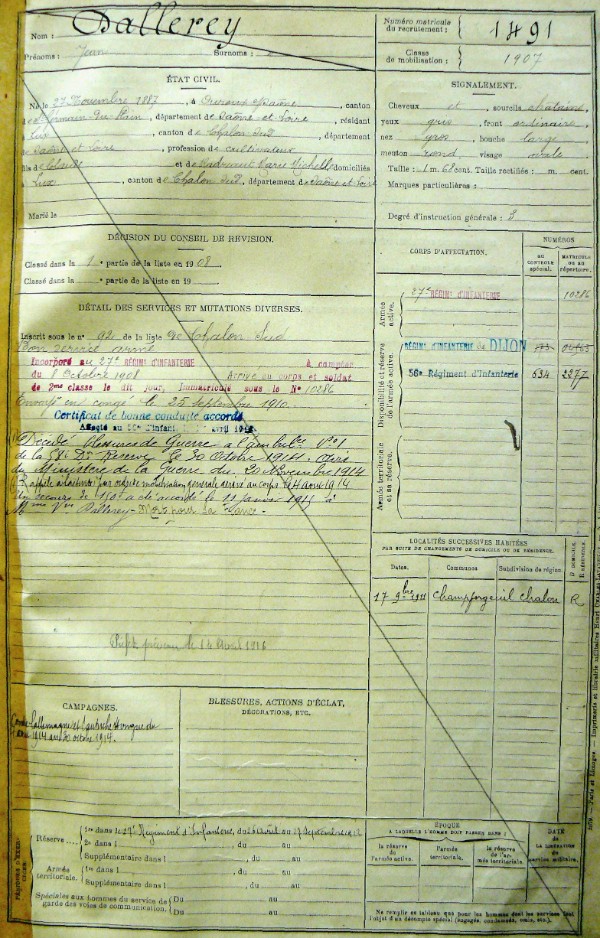 Nom : Dallerey
Prénoms : Jean Surnoms :
Numéro matricule du recrutement : 1491
Classe de mobilisation : 1907
ÉTAT CIVIL.
Né le 27 Novembre 1887, à Saône, canton
de St Germain du Plain, département de Saône et Loire, résidant
à Lux, canton de Chalon Sud, département
de Saône et Loire, profession de cultivateur
fils de Claude et de Marie domiciliés
à Lux, canton de Chalon Sud, département de Saône et Loire
Marié le
SIGNALEMENT.
Cheveux et sourcils châtains,
yeux gris, front ordinaire,
nez gros, bouche large,
menton rond, visage ovale
Taille : 1 m. 68 cent. Taille rectifiée : m. cent.
Marques particulières :
Degré d'instruction générale : 3
DÉCISION DU CONSEIL DE RÉVISION.
Classé dans la 1e partie de la liste en 1908
Classé dans la e partie de la liste en 19
DÉTAIL DES SERVICES ET MUTATIONS DIVERSES.
Inscrit sous le n° 92 de la liste de Chalon Sud
Bon service armé
Incorporé au 27e RÉGIMENT D'INFANTERIE à compter
du 8 Octobre 1908 Arrivé au corps et soldat
de 2me classe le dit jour, immatriculé sous le No 10286
Envoyé en congé le 25 septembre 1910.
Certificat de bonne conduite accordé
Affecté au 56e d'Infant. avril 1914
Décédé Blessures de Guerre à l'ambulce N°1
de la 58e Don Réserve le 30 Octobre 1914. Avis
du Ministère de la Guerre du 20 Novembre 1914
Rappelé à l'activité par mobilisation générale arrivé au corps le 4 Août 1914
Un secours de 150f a été accordé le 11 janvier 1915 à
Mme Vve Dallerey - Mort pour la France -
CORPS D'AFFECTATION.
NUMÉROS
AU CONTRÔLE spécial.
MATRICULE OU AU répertoire.
Armée active.
27e RÉGIMENT D'INFANTERIE 10286
Disponibilité et réserve de l'armée active.
RÉGIMt D'INFANTERIE de DIJON
56e Régiment d'Infanterie 634 2277
Armée territoriale et sa réserve.
LOCALITÉS SUCCESSIVES HABITÉES
PAR SUITE DE CHANGEMENTS DE DOMICILE OU DE RÉSIDENCE.
Dates. Communes Subdivision de région D DOMICILE. R RÉSIDENCE.
17 9bre 1911 Champforgeuil Chalon R
CAMPAGNES.
Contre l'allemagne et l'autriche-hongrie du
1914 au 30 octobre 1914.
BLESSURES, ACTIONS D'ÉCLAT, DÉCORATIONS, ETC.
PÉRIODES D'EXERCICES.
Réserve 1re dans le 27e Régiment d'Infanterie, du 26 Août au 17 Septembre 1912
2e dans l , du au
Supplémentaire dans l , du au
Armée territoriale. 1re dans l , du au
Supplémentaire dans l , du au
Spéciales aux hommes du service de garde des voies de communication. Du au
Du au
ÉPOQUE
A LAQUELLE L'HOMME DOIT PASSER DANS :
la réserve de l'armée active.
l'armée territoriale.
la réserve de l'armée territoriale.
DATE DE LA LIBÉRATION du service militaire.
Ne remplir ce tableau que pour les hommes dont les services font l'objet d'un décompte spécial (engagés, condamnés, omis, etc.).